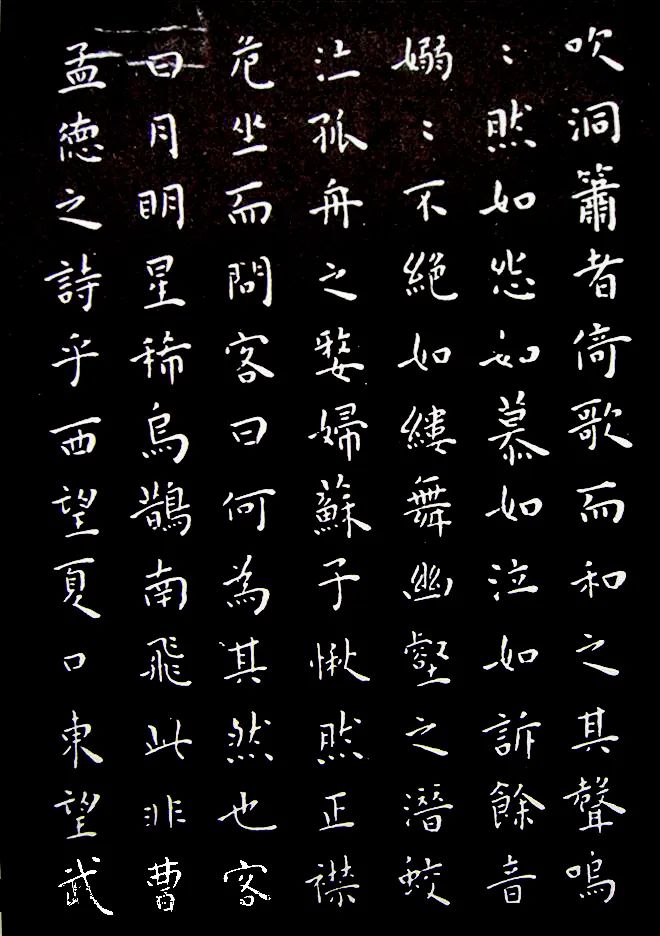 吹洞簫者倚歌而和之其聲嗚
：然如怨如慕如泣如訴餘音
嫋：不絕如縷舞幽壑之潛蛟
泣孤舟之嫠婦蘇子愀然正襟
危坐而問客曰何為其然也客
曰月明星稀烏鵲南飛此非曹
孟德之詩乎西望夏口東望武